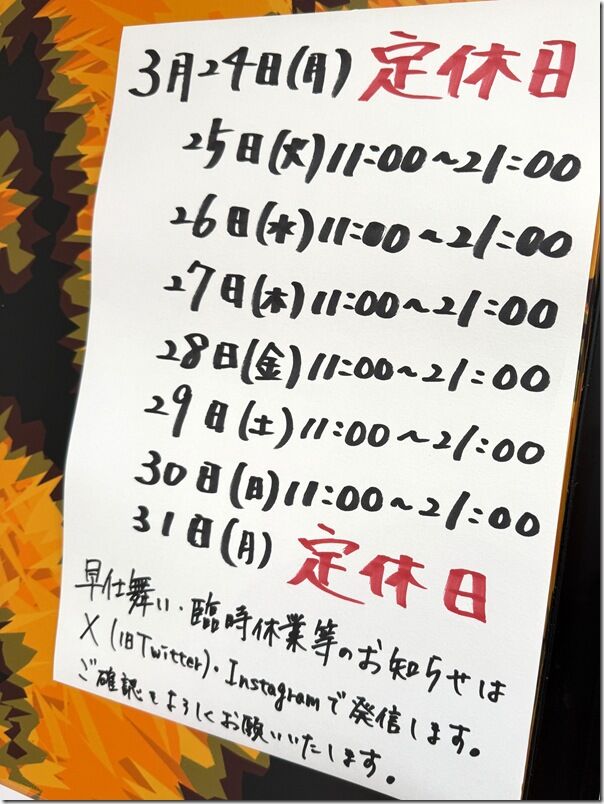 3月24日(月) 定休日
25日(火)11:00~21:00
26日(水)11:00~21:00
27日(木)11:00~21:00
28日(金)11:00~21:00
29日(土)11:00~21:00
30日(日)11:00~21:00
31日(月) 定休日
早仕舞い・臨時休業等のお知らせは
X(旧Twitter)・Instagramで発信します。
ご確認をよろしくお願いいたします。